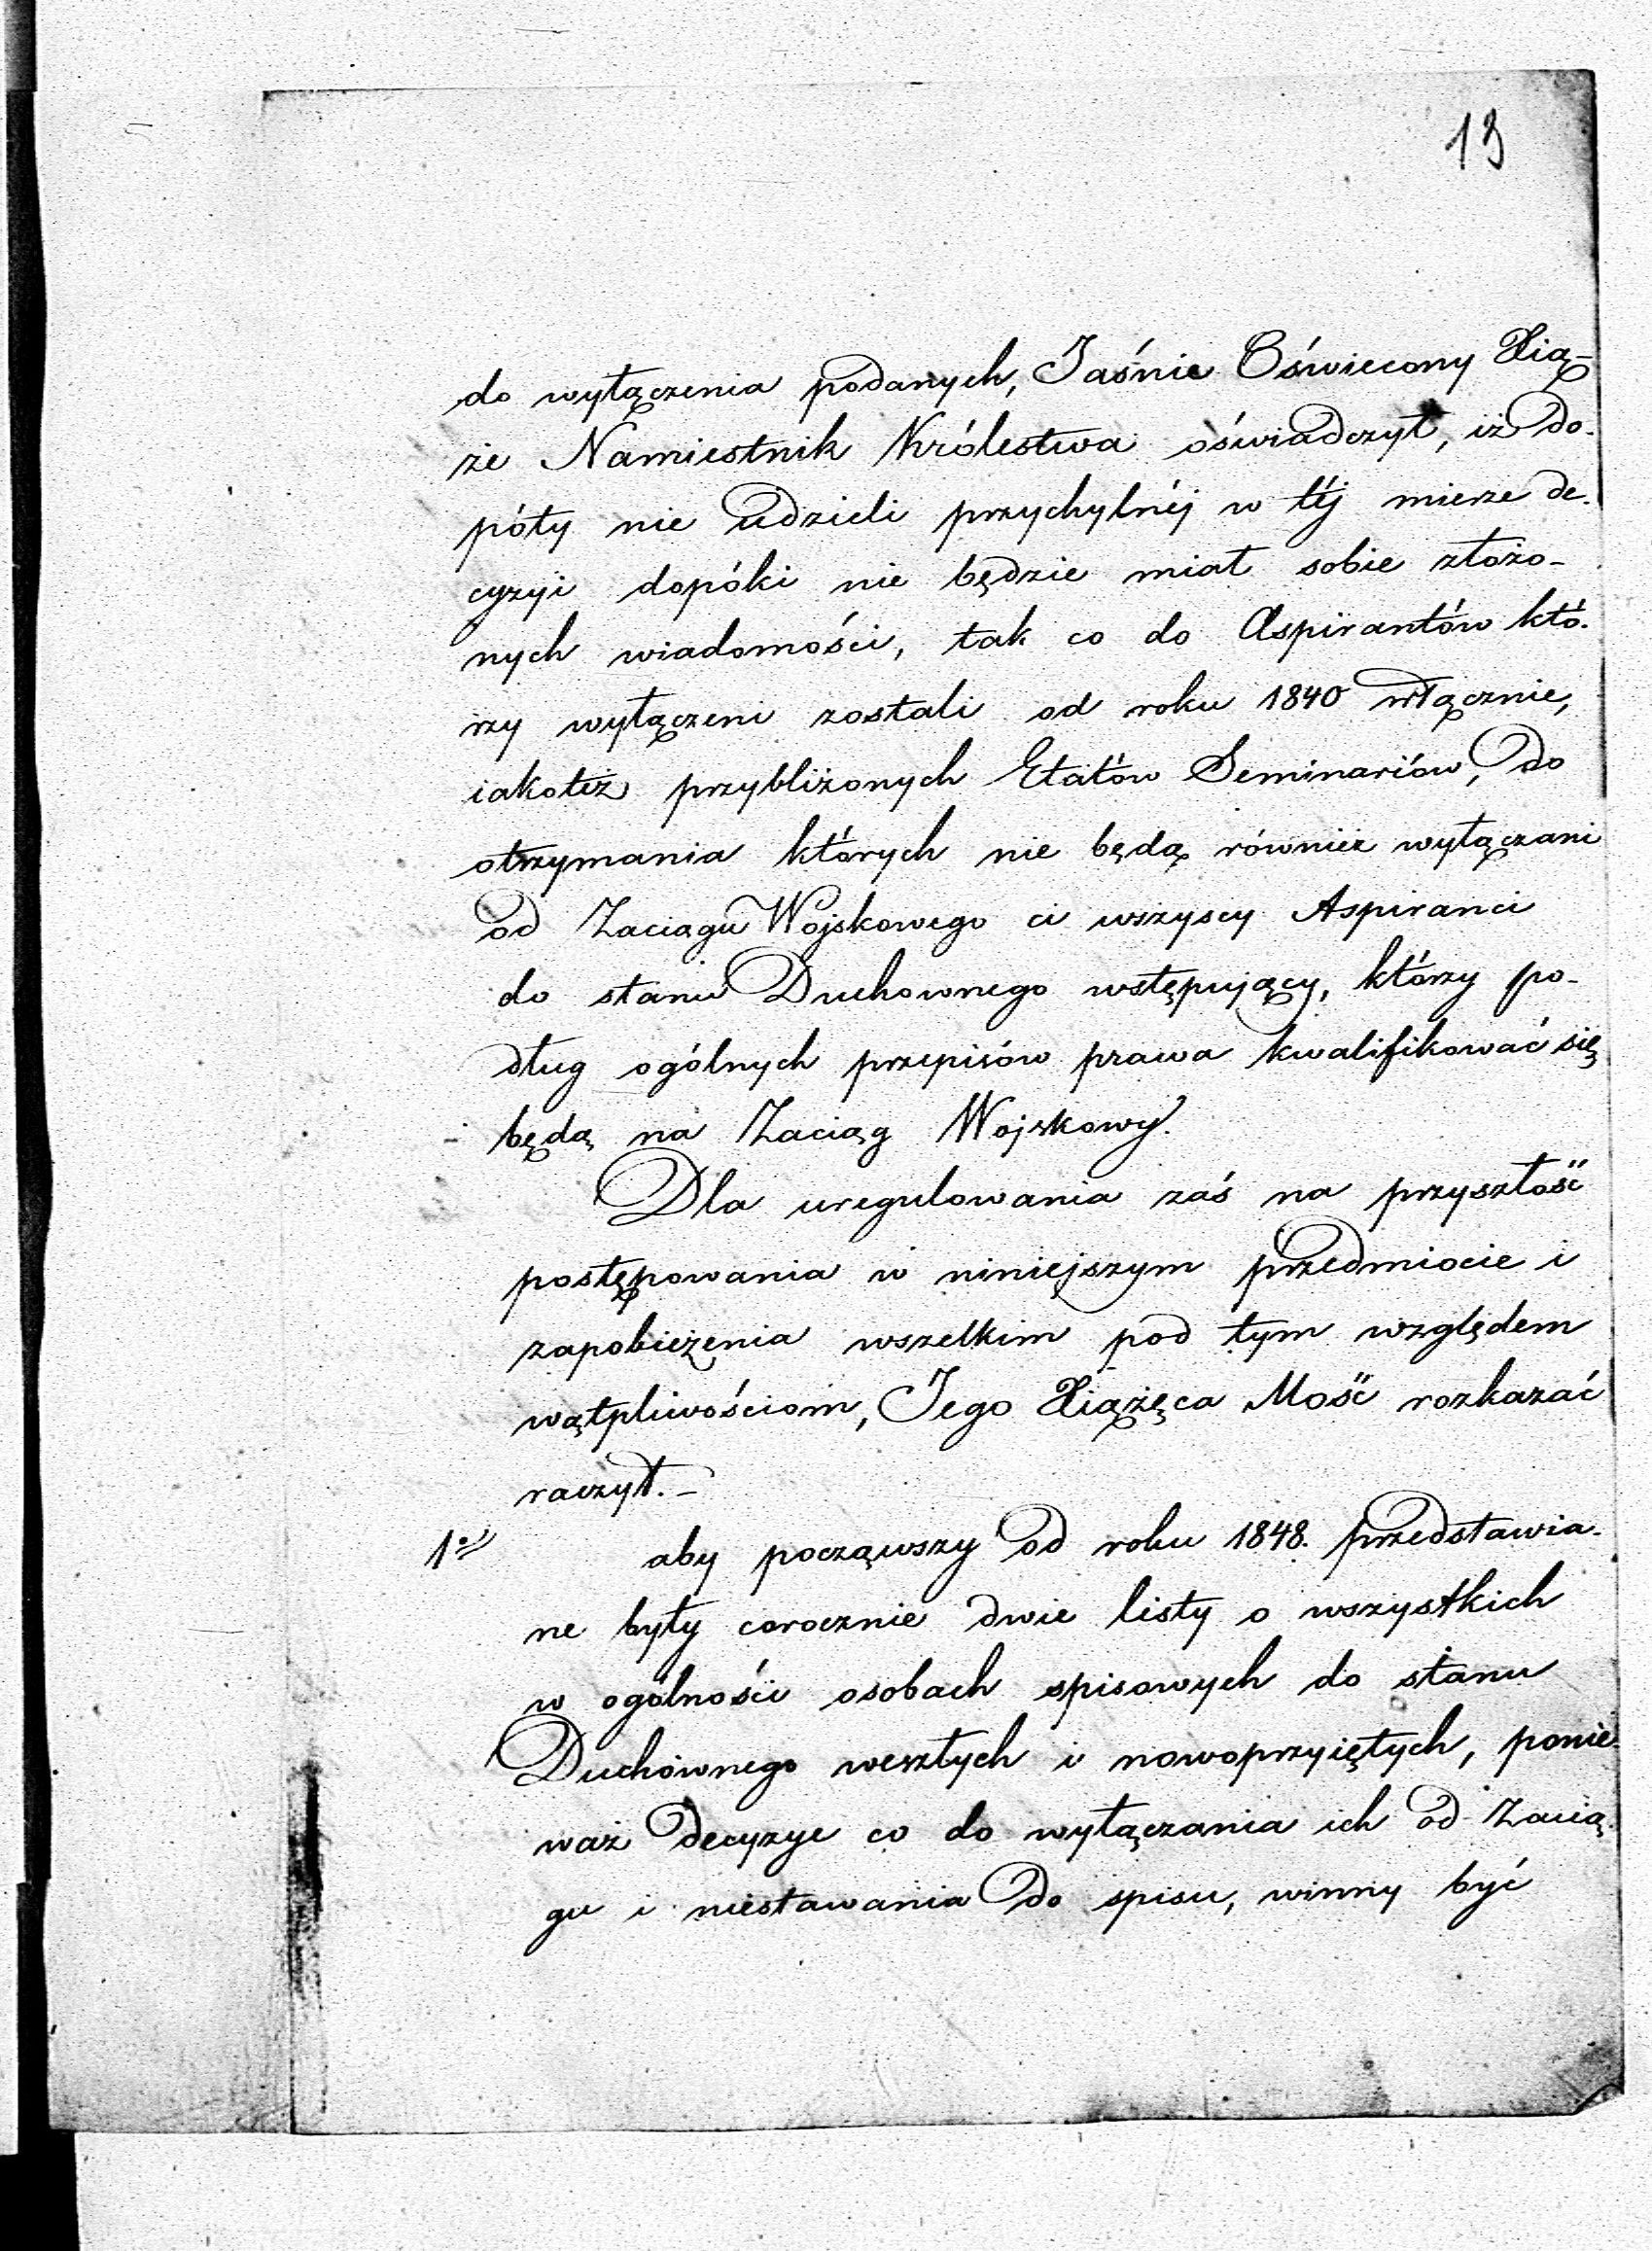 13
do wyłączenia podanych, Jaśnie Oświecony Xią-
że Namiestnik Królestwa oświadczył, iż do-
póty nie udzieli przychylnéj w téj mierze de-
cyzyi dopóki nie będzie miał sobie złożo-
nych wiadomości, tak co do Aspirantów któ-
rzy wyłączeni zostali od roku 1840 włącznie,
iakoteż przybliżonych Etatów Seminariów, do
otrzymania których nie będą również wyłączani
od Zaciągu Wojskowego ci wszyscy Aspiranci
do stanu Duchownego wstępujący, którzy po-
dług ogólnych przepisów prawa kwalifikować się
będą na Zaciąg Wojskowy.
Dla uregulowania zaś na przyszłość
postępowania w niniejszym przedmiocie i
zapobieżenia wszelkim pod tym względem
wątpliwościom, Jego Xiążęca Mość rozkazać
raczył. –
1o aby począwszy od roku 1848. przedstawia-
ne były corocznie dwie listy o wszystkich
w ogólności osobach spisowych do stanu
Duchownego weszłych i nowoprzyiętych, ponie-
waż decyzye co do wyłączania ich od Zacią-
gu i niestawania do spisu, winny być